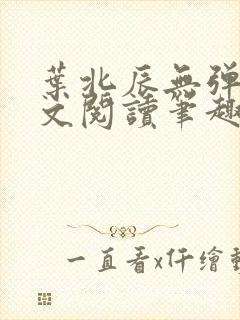 葉北辰無彈
文閱讀筆趣
一直看x仟繪動